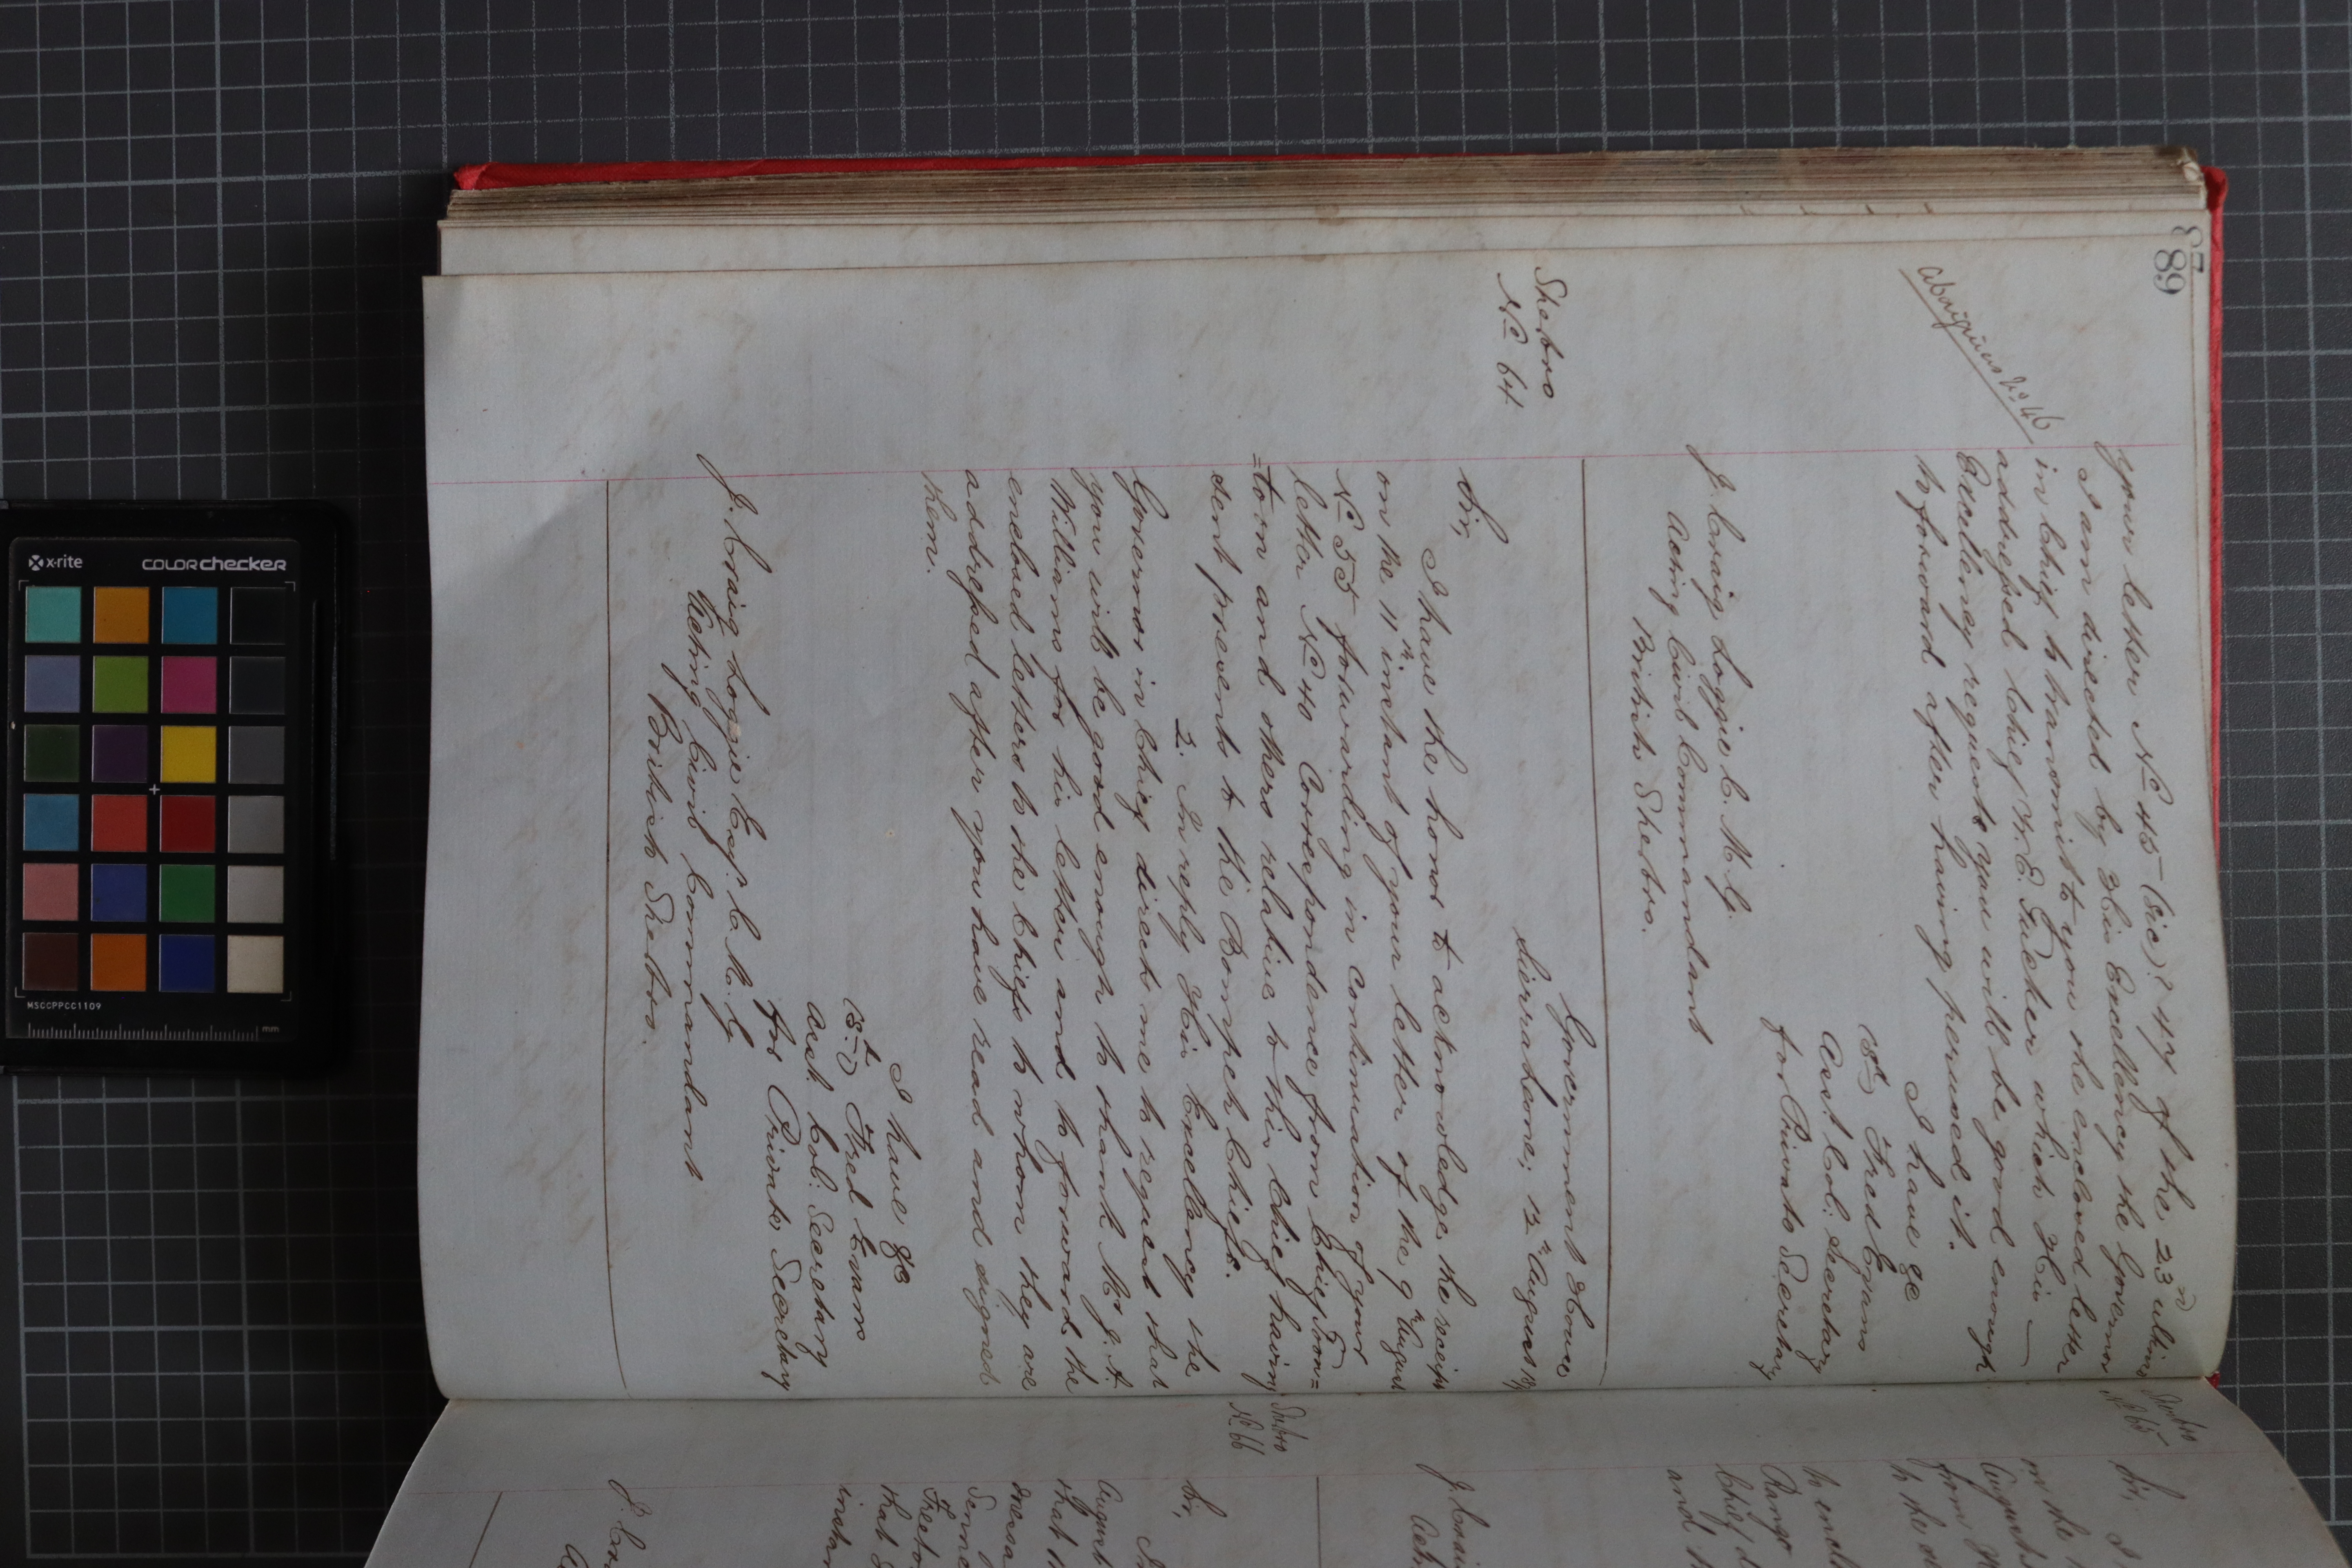 89
Aborigines No 46
your letter No 45 (sic)? 47 of the 23rd ultimo
I am directed by His Excellency the Governor
in Chief to transmit to you the enclosed letter
addressed Chief W. E. Tucker which His
Excellency requests you will be good enough
to forward after having perused it.
I have &c
Fred Evans
Asst. Col: Secretary
for Private Secretary
J. Craig Loggie C. M. G.
Acting Civil Commandant
British Sherbro.
Sherbro
No 64
Government House
Sierra Leone; 12th August
Sir,
I have the honor to acknowledge the receipt
on the 11th instant of your letter of the 9th August
No 55 forwarding in continuation of your
letter No 40 Correspondence from Chief
and others relative to this Chief having
sent presents to the Bompeh Chiefs.
2. In reply His Excellency the
Governor in Chief directs me to request that
you will be good enough to thank Mr J. A.
Williams for his letter and to forward the
enclosed letters to the Chiefs to whom they are
addressed after you have read and signed
them.
I have &c
Fred Evans
Asst. Col: Secretary
for Private Secretary
J. Craig Loggie Esq. C. M. G
Acting Civil Commandant
British Sherbro.
Sherbro
No 65
Sir,
I
on the
August
from
to the
to encl
Range
Chief
and
J. Crai
Act
Sherbro
No 66
Sir,
August
that
Freeto
that
instan
J. Cra